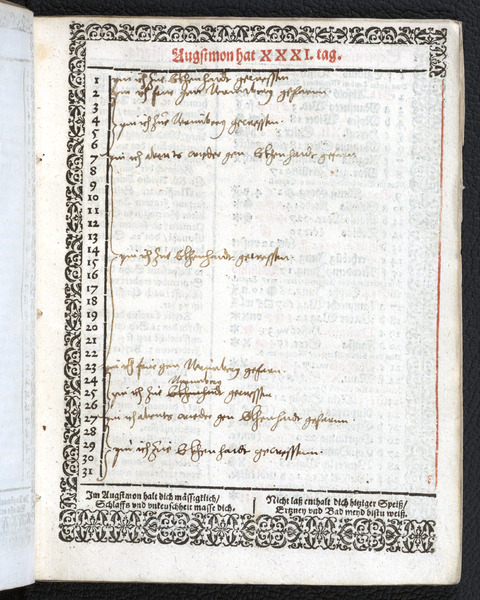 Augstmon hat XXXI. tag.
1 pin ich zue Ekhenhaidt gewessen
2 pin ich frue gen Nermberg gefarnn
3
4 pin ich zue Nermberg gewessen
5
6
7 pin ich abents wieder gen Ekhenhaidt gefarn
8
9
10
11
12
13
14 pin ich zue Ekhenhaidt gewessen
15
16
17
18
19
20
21
22
23 pin ich frue gen Nermberg gefarn
24 Nermberg
25 pin ich zue Ekhenhaidt gewessen
26
27 pin ich abents wieder gen Ekhenhaidt gefarnn
28
29 pin ich zue Ekhenhaidt gewessenn
30
31
Im Augstmon halt dich mässigtlich/
Schlaffs vnd vnkeuschheit masse dich.
Nicht laß enthalt dich hitziger Speiß/
Ertzney vnd Bad meyd bistu weiß.